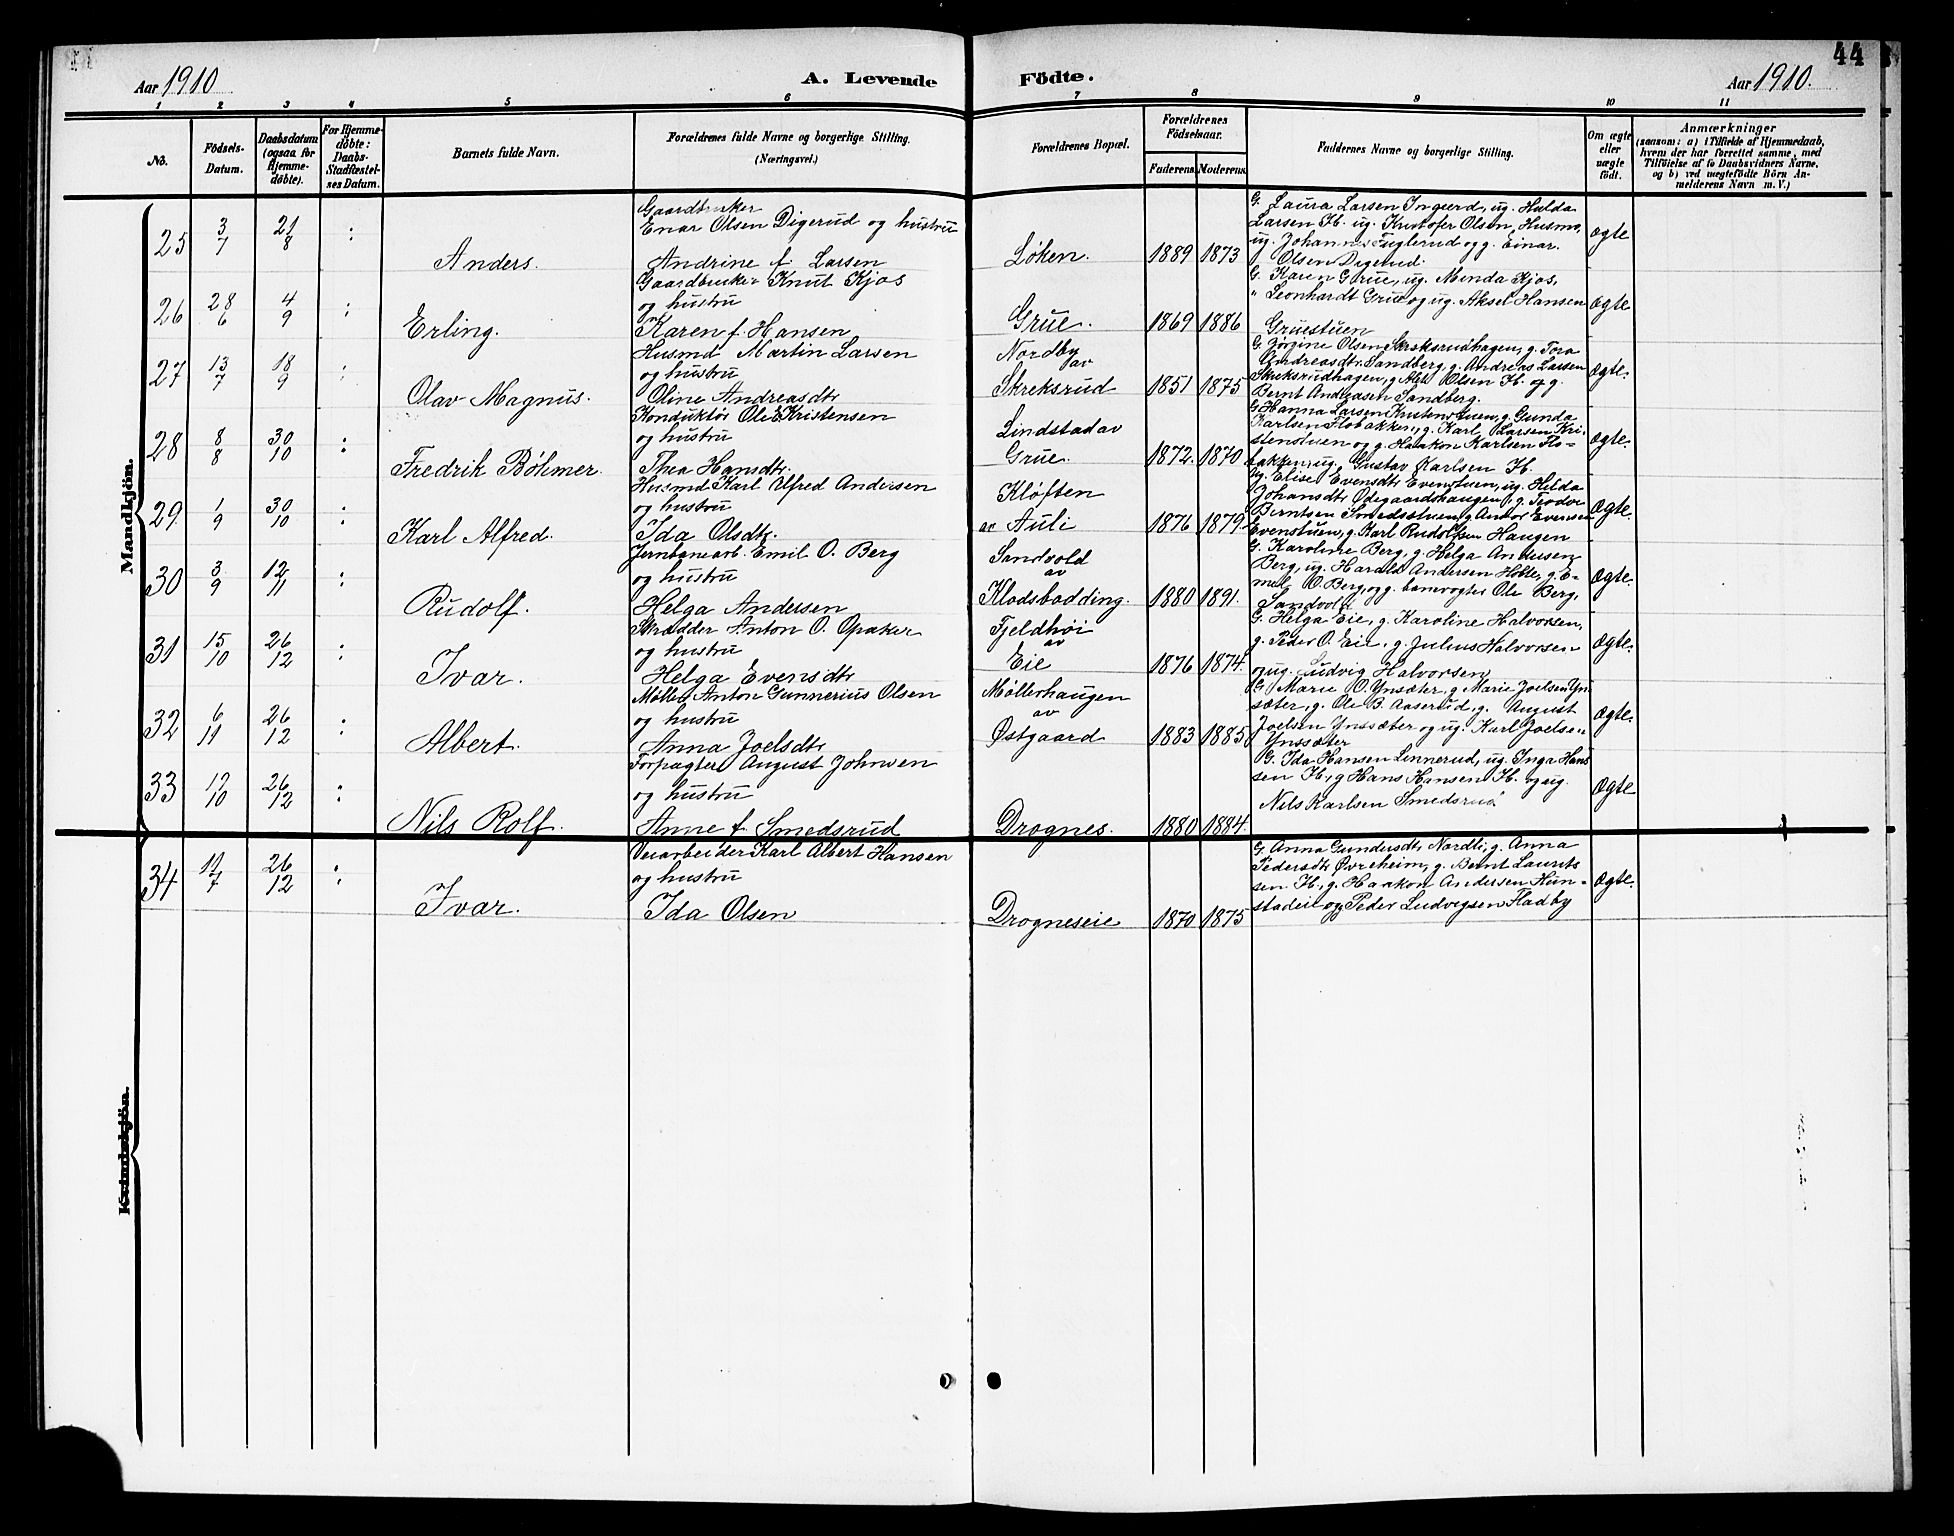 44
Aar 1910
A. Levende
Födte.
Aar 1910.
1 2 3 4 5 6 7 8 9 10 11
No.
Födsels-
Datum.
Daabsdatum
(ogsaa for
Hjemme-
döbte).
For Hjemme-
döbte:
Daabs-
Stadfæstel-
ses Datum.
Barnets fulde Navn.
Forældrenes fulde Navne og borgerlige Stilling.
(Næringsvei.)
Forældrenes Bopæl.
Forældrenes
Födselsaar.
Faderens. Moderens.
Faddernes Navne og borgerlige Stilling.
Om ægte
eller
uægte
födt.
Anmærkninger
(saasom: a) i Tilfælde af Hjemmedaab,
hvem der har forrettet samme, med
Tilföielse af to Daabsvidners Navne,
og b) ved uægtefödte Börn An-
melderens Navn m. V.)
Mandkjön.
25
3/7
21/8
:
Anders.
Gaardbruker
Enar Olsen Digerud og hustru
Andrine f. Larsen
Løken.
1889 1873
G. Laura Larsen Ingerd, ug. Hulda
Larsen Ib. ug. Kristofer Olsen, Husmo,
ug. Johannes Fuglerud og g. Einar
Olsen Digerud.
Ægte
26
28/6
4/9
:
Erling.
Gaardbruker Knut Kjos
og hustru
Karen f. Hansen
Grue.
1869 1886
G. Karen Grue, ug. Menda Kjos,
" Leonhardt Grue og ug. Aksel Hansen
Gruestuen
Ægte
27
13/7
18/9
:
Olav Magnus.
Husmd Martin Larsen
og hustru
Oline Andreasdtr
Nordby
av
Skreksrud
1851 1875
G. Jørgine Olsen Skreksrudhagen, g. Tora
Andreasdtr. Sandberg, g. Andreas Larsen
Skreksrudhagen, g. Olsen Ib. og g.
Bernt Andreasen Sandberg.
Ægte.
28
8/8
30/10
:
Fredrik Bøhmer.
Konduktør Ole Kristensen
og hustru
Thea Hansdtr.
Lindstad av
Grue.
1872. 1870
G. Hanna Larsen Kristenstuen, g. Gunda
Karlsen Flobakken, g. Karl Larsen Kri-
stenstuen og g. Haakon Karlsen Flo-
bakken, ug. Gustav Karlsen Ib.
Ægte.
29
1/9
30/10
:
Karl Alfred.
Husmd Karl Alfred Andersen
og hustru
Ida Olsdtr.
Kløften
av Auli
1876 1879.
ug. Elise Evensdtr Evenstuen, ug. Hilda
Johansdtr Ødegaardshaugen, g. Teodor
Berntsen Smedsstuen, g. Anton Evensen
Evenstuen, g. Karl Rudolfsen Haugen
Ægte.
30
3/9
12/11
:
Rudolf.
Jernbanearb. Emil O. Berg
og hustru
Helga Andersen
Sandvold
av
Klodsbodding.
1880 1891.
G. Karoline Berg, g. Helga Andersen
Berg, ug. Harald Andersen Hoble, g. E-
mil O. Berg, og g. banevogter Ole Berg,
Sandvold
Ægte.
31
15/10
26/12
:
Ivar.
Skrædder Anton O. Opaker
og hustru
Helga Evensdtr
Fjeldhøi
av
Eie
1876 1874.
G. Helga Eie, g. Karoline Halvorsen,
g. Peder O. Eie, g. Julius Halvorsen
og ug. Ludvig Halvorsen
Ægte.
32
6/11
26/12
:
Albert.
Møller Anton Gunnerius Olsen
og hustru
Anna Joelsdtr
Møllerhaugen
av
Østgaard
1883 1885
G. Marie O. Ynsæter, g. Marie Joelsen Yn-
sæter, g. Ole B. Aaserud, g. August
Joelsen Ynssæter og ug. Karl Joelsen
Ynssæter
Ægte.
33
17/10
26/12
:
Nils Rolf.
Forpagter August Johnsen
og hustru
Anne f. Smedsrud
Drognes.
1880 1884.
G. Ida Hansen Linnerud, ug. Inga Han-
sen Ib., g. Hans Hansen Ib. og ug.
Nils Karlsen Smedsrud
Ægte
34
17/7
26/12
:
Ivar.
Veiarbeider Karl Albert Hansen
og hustru
Ida Olsen
Drogneseie
1870 1875
G. Anna Gundersdtr Nordli, g. Anna
Pedersdtr Øvreheim, g. Bernt Laurit-
sen Ib., g. Haakon Andersen Hun-
stadeie og Peder Ludvigsen Fladby
Ægte.
Kvindekjön.